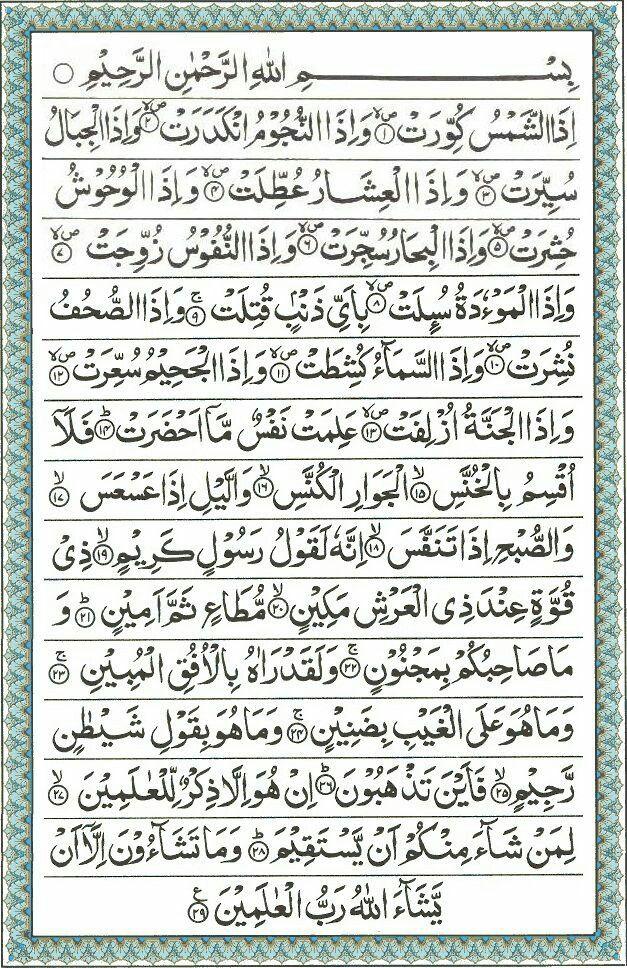 بِسْمِ اللهِ الرَّحْمٰنِ الرَّحِيْمِ ○
اِذَا الشَّمْسُ كُوِّرَتْ ۙ﴿۱﴾ وَاِذَا النُّجُوْمُ انْكَدَرَتْ ۙ﴿۲﴾ وَاِذَا الْجِبَالُ
سُيِّرَتْ ۙ﴿۳﴾ وَاِذَا الْعِشَارُ عُطِّلَتْ ۙ﴿۴﴾ وَاِذَا الْوُحُوْشُ
حُشِرَتْ ۙ﴿۵﴾ وَاِذَا الْبِحَارُ سُجِّرَتْ ۙ﴿۶﴾ وَاِذَا النُّفُوْسُ زُوِّجَتْ ۙ﴿۷﴾
وَاِذَا الْمَوْءٗدَةُ سُىِٕلَتْ ۙ﴿۸﴾ بِاَىِّ ذَنْۢبٍ قُتِلَتْ ۚ﴿۹﴾ وَاِذَا الصُّحُفُ
نُشِرَتْ ۙ﴿۱۰﴾ وَاِذَا السَّمَآءُ كُشِطَتْ ۙ﴿۱۱﴾ وَاِذَا الْجَحِيْمُ سُعِّرَتْ ۙ﴿۱۲﴾
وَاِذَا الْجَنَّةُ اُزْلِفَتْ ۙ﴿۱۳﴾ عَلِمَتْ نَفْسٌ مَّاۤ اَحْضَرَتْ ؕ﴿۱۴﴾ فَلَاۤ
اُقْسِمُ بِالْخُنَّسِ ۙ﴿۱۵﴾ الْجَوَارِ الْكُنَّسِ ۙ﴿۱۶﴾ وَالَّيْلِ اِذَا عَسْعَسَ ۙ﴿۱۷﴾
وَالصُّبْحِ اِذَا تَنَفَّسَ ۙ﴿۱۸﴾ اِنَّهٗ لَقَوْلُ رَسُوْلٍ كَرِيْمٍ ۙ﴿۱۹﴾ ذِىْ
قُوَّةٍ عِنْدَ ذِى الْعَرْشِ مَكِيْنٍ ۙ﴿۲۰﴾ مُّطَاعٍ ثَمَّ اَمِيْنٍ ؕ﴿۲۱﴾ وَ
مَا صَاحِبُكُمْ بِمَجْنُوْنٍ ۚ﴿۲۲﴾ وَلَقَدْ رَاٰهُ بِالْاُفُقِ الْمُبِيْنِ ۚ﴿۲۳﴾
وَمَا هُوَ عَلَى الْغَيْبِ بِضَنِيْنٍ ۚ﴿۲۴﴾ وَمَا هُوَ بِقَوْلِ شَيْطٰنٍ
رَّجِيْمٍ ۙ﴿۲۵﴾ فَاَيْنَ تَذْهَبُوْنَ ؕ﴿۲۶﴾ اِنْ هُوَ اِلَّا ذِكْرٌ لِّلْعٰلَمِيْنَ ۙ﴿۲۷﴾
لِمَنْ شَآءَ مِنْكُمْ اَنْ يَّسْتَقِيْمَ ؕ﴿۲۸﴾ وَمَا تَشَآءُوْنَ اِلَّاۤ اَنْ
يَّشَآءَ اللهُ رَبُّ الْعٰلَمِيْنَ ﴿۲۹﴾ ع